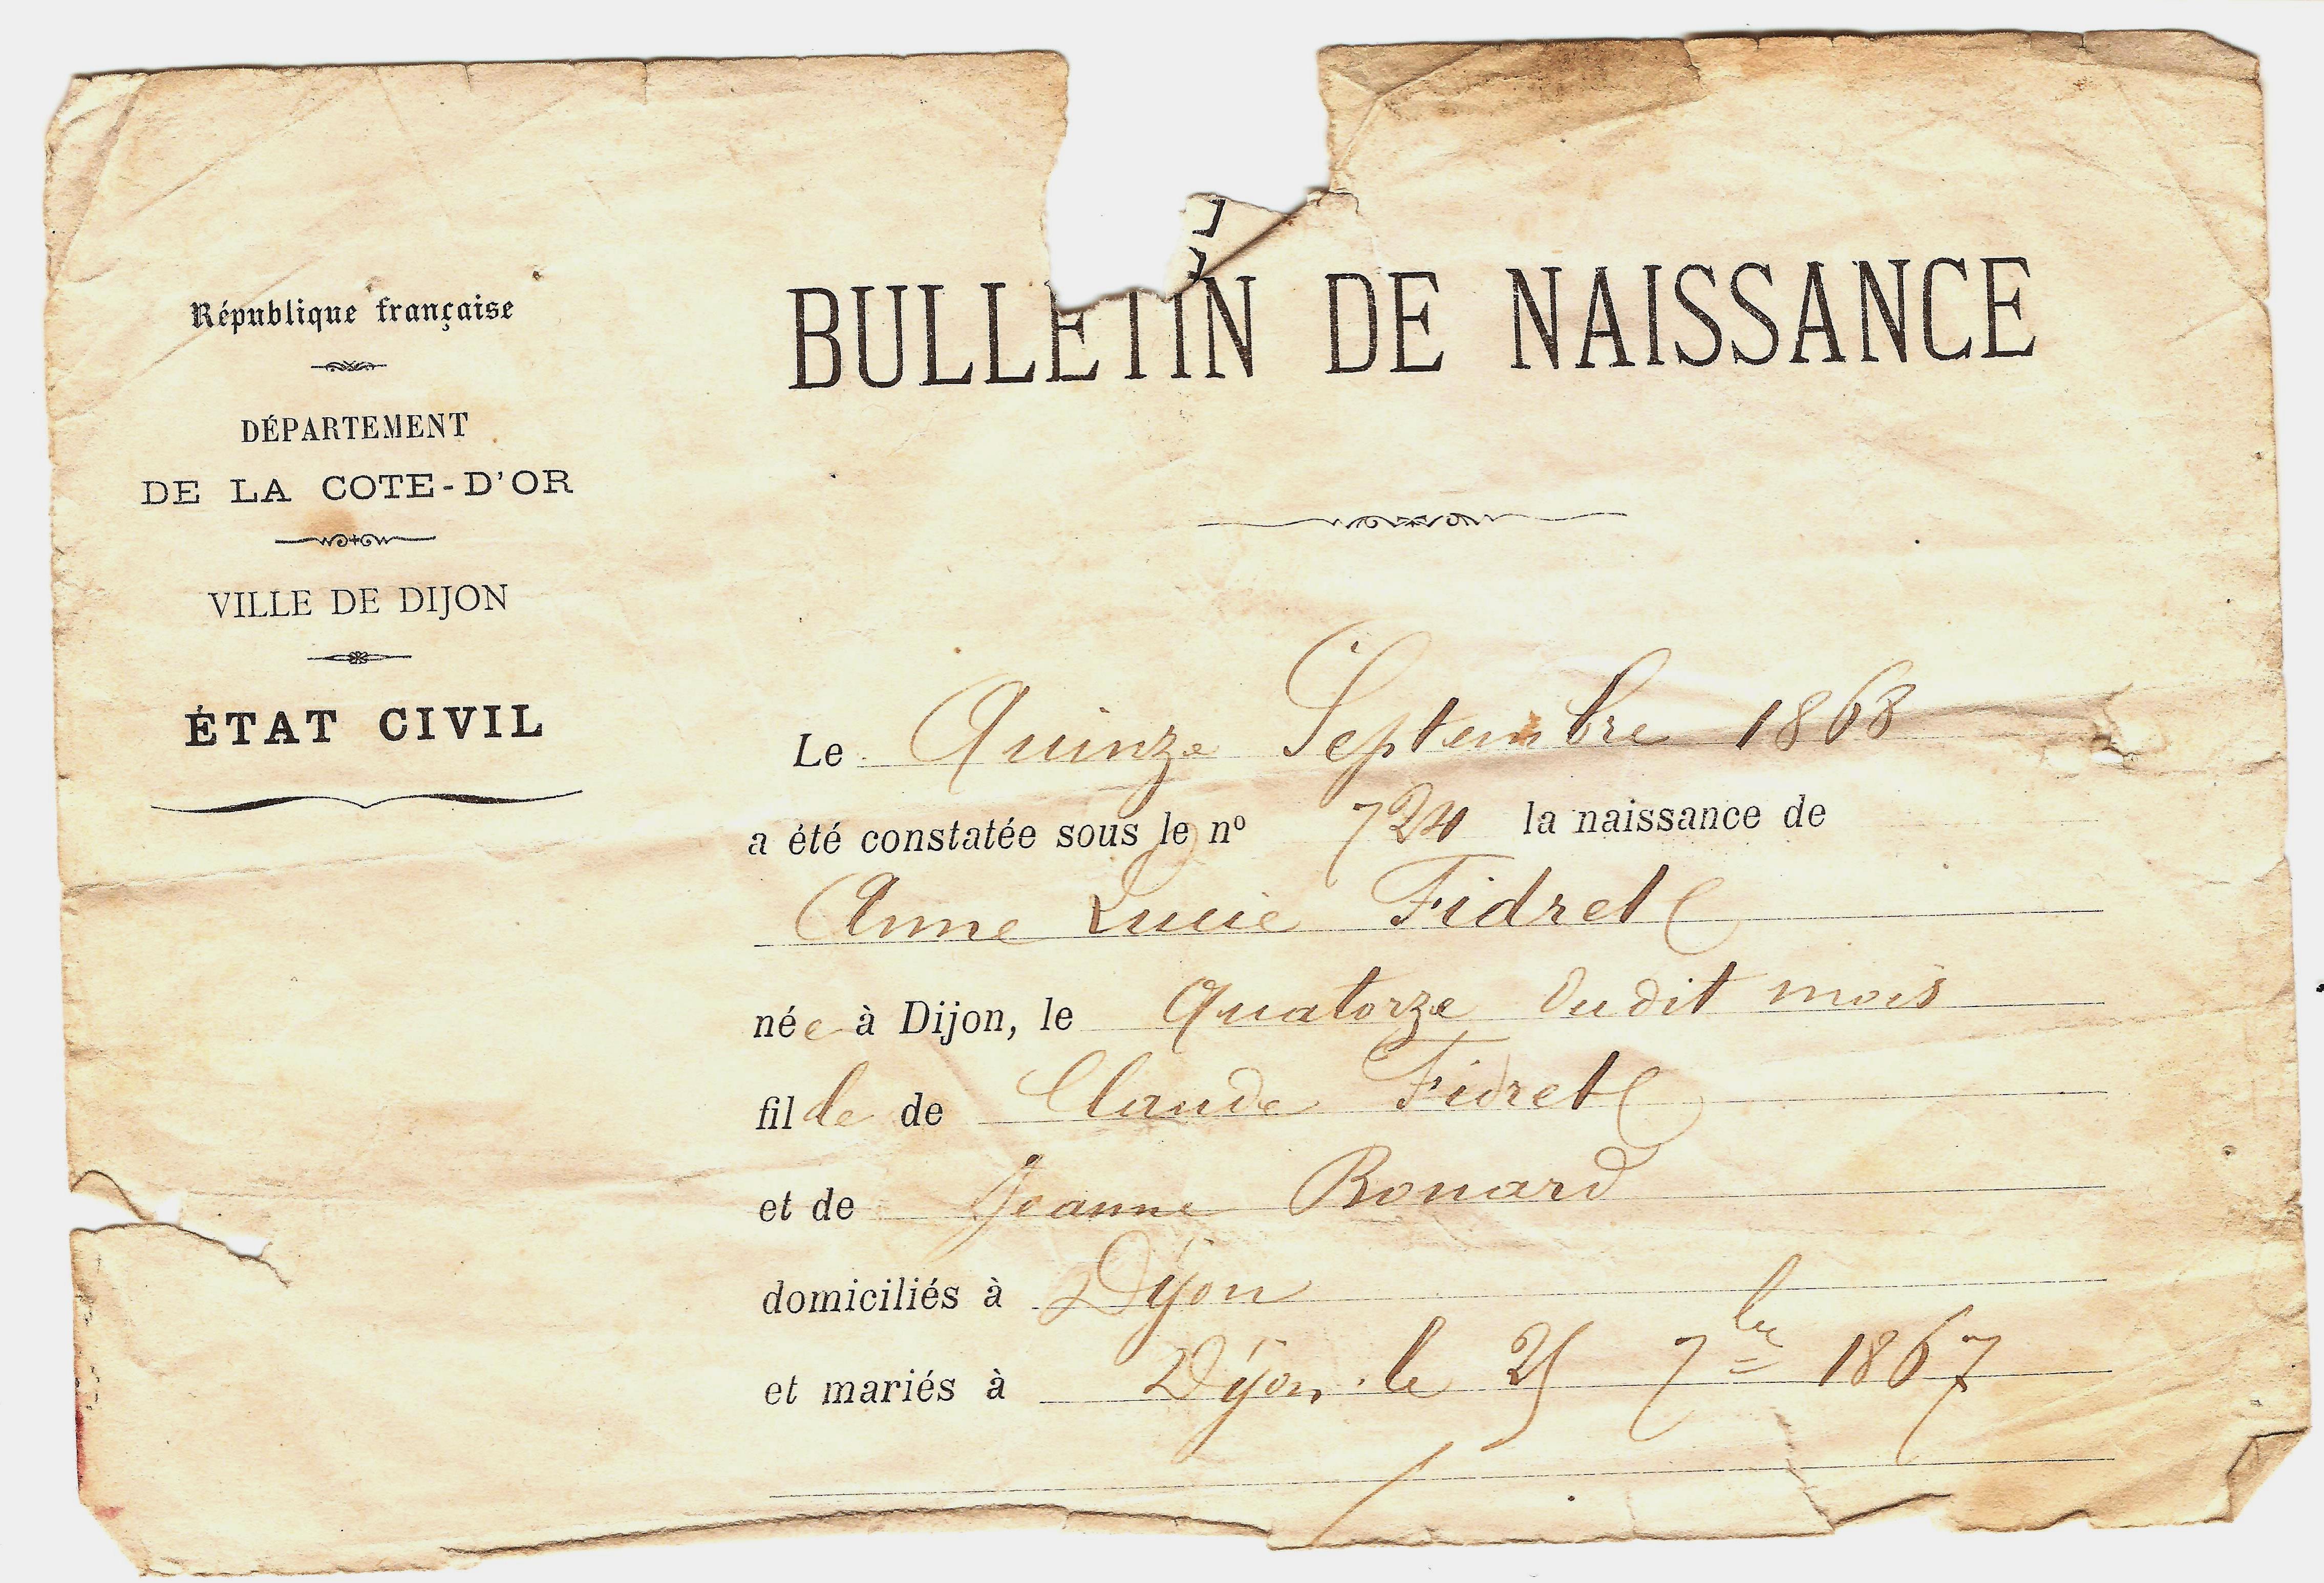 République française
DÉPARTEMENT
DE LA COTE-D'OR
VILLE DE DIJON
ÉTAT CIVIL
BULLETIN DE NAISSANCE
Le Quinze Septembre 1868
a été constatée sous le nº 724 la naissance de
Anne Lucie Fidret
née à Dijon, le Quatorze dudit mois
fille de Claude Fidret
et de Jeanne Bonard
domiciliés à Dijon
et mariés à Dijon, le 25 7bre 1867